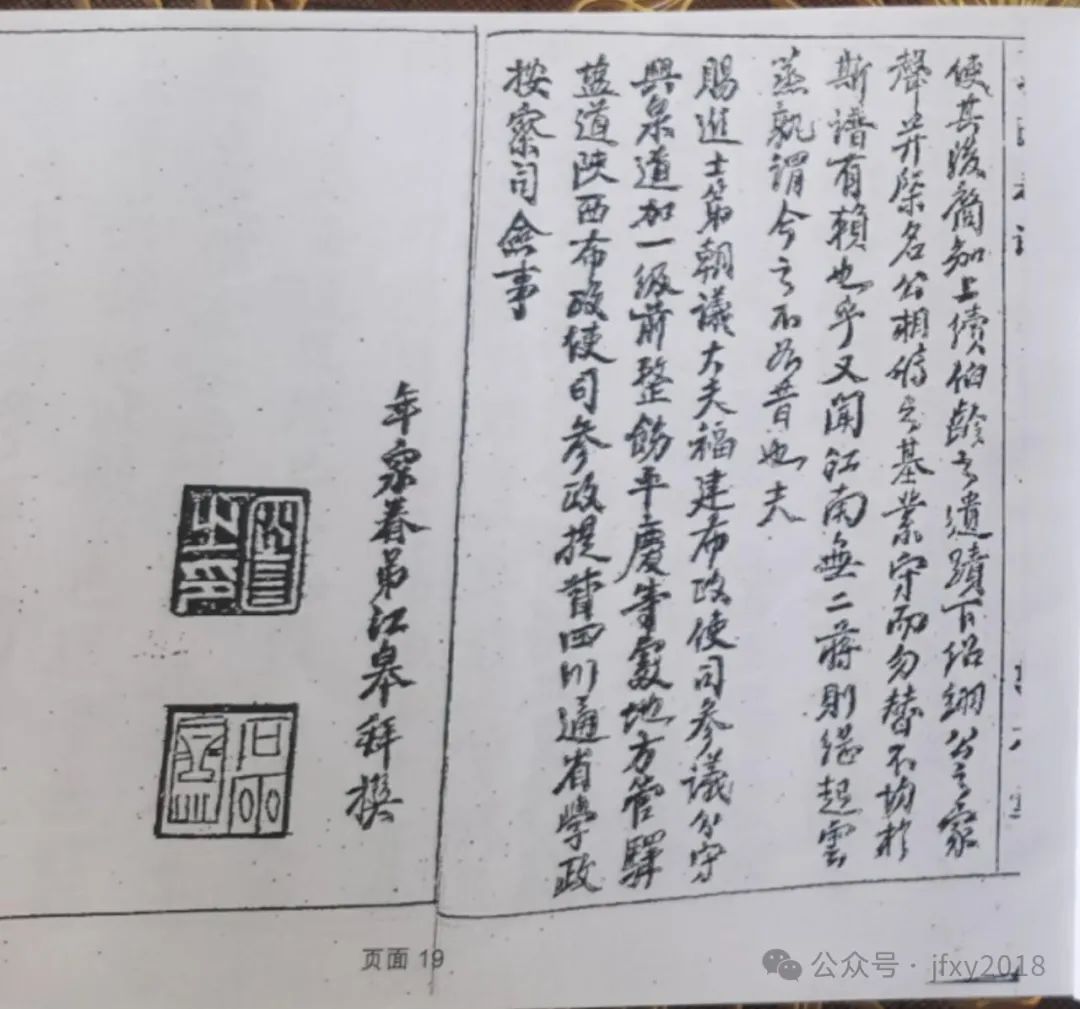 使其後裔知上續伯齡之遺蹟下紹翊公之家
聲并槩名公相傳之基業守而勿替不均於
斯譜有賴也乎又聞江南無二蔣則繼起雲
蒸孰謂今之不若昔也夫
賜進士第朝議大夫福建布政使司參議分守
興泉道加一級前整飭平慶等處地方管驛
鹽道陝西布政使司參政提督四川通省學政
按察司僉事
年家眷弟江皋拜撰
页面 19
公众号 · jfxy2018